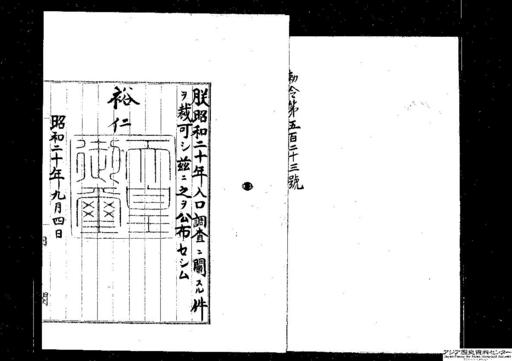 勅令第五百二十三號
朕昭和二十年人口調査ニ關スル件
ヲ裁可シ茲ニ之ヲ公布セシム
裕仁
天皇御璽
昭和二十年九月四日
アジア歴史資料センター